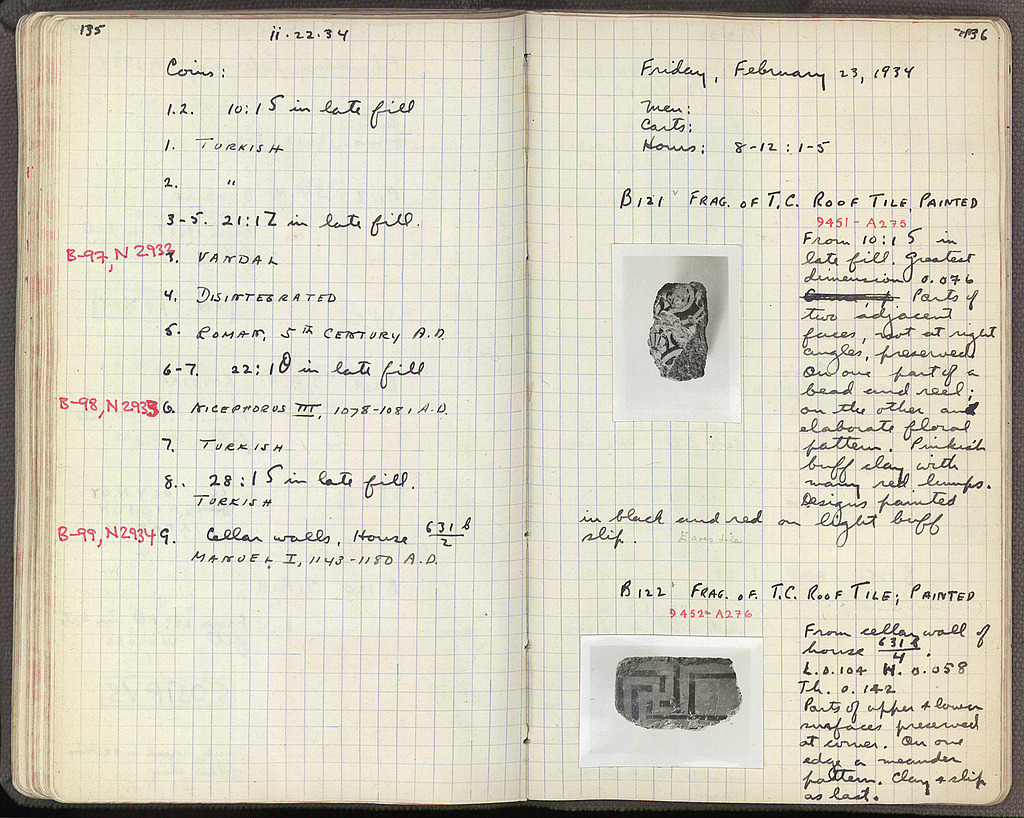 135
ii.22.34
Coins:
1.2. 10:15 in late fill
1. TURKISH
2. "
3-5. 21:17 in late fill.
B-97, N 2932 3. VANDAL
4. DISINTEGRATED
5. ROMAN, 5TH CENTURY A.D.
6-7. 22:10 in late fill
B-98, N2933 6. NICEPHORUS III, 1078-1081 A.D.
7. TURKISH
8.. 28:15 in late fill.
TURKISH
B-99, N2934 9. Cellar walls, House 631b/2
MANUEL I, 1143-1180 A.D.
136
Friday, February 23, 1934
Men:
Carts:
Hours: 8-12 : 1-5
B121 FRAG. OF T.C. ROOF TILE, PAINTED
9451-A275
From 10:15 in
late fill. Greatest
dimension 0.076
Parts of
two adjacent
faces, not at right
angles, preserved
On one part of a
bead and reel;
on the other an
elaborate floral
pattern. Pinkish
buff clay with
many red lumps.
Designs painted
in black and red on light buff
slip. Eaves tile
B122 FRAG. OF. T.C. ROOF TILE; PAINTED
9452-A276
From cellar wall of
house 631/4.
L. 0.104 H. 0.058
Th. 0.142
Parts of upper & lower
surfaces preserved
at corner. On one
edge a meander
pattern. Clay & slip
as last.